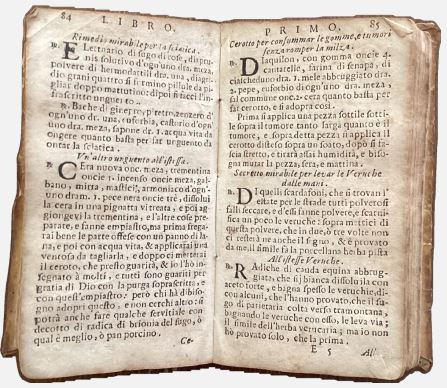 84 LIBRO.
Rimedio mirabile per la sciatica.
℞. ELettuario di sugo di rose, diapru-
nis solutivo d'ogn'uno dra. meza,
polvere di hermodattili dra. una, diagri-
dio grani quattro si fermino pillule da pi-
gliar doppo mattutino: di poi si ficci l'in-
frascritto unguento..
℞. Bache di ginepro, pescrude, nitro d'
ogn'uno dra. una, euforbia, castorio d'ogn'
uno dra. meza, sapone dr. 1. acqua vita da
ongere quanto basta per far unguento da
ontar la sciatica.
Un'altro unguento all'istessa.
℞. CEra nuova onc. meza, trementina
oncie 1. incenso oncie meza, gal-
bano, mirra, mastici, armoniaco d'ogn'
uno dram. 1. pece nera oncie tre, dissolui
la cera in una pignatta vitreata, e poi ag-
giongevi la trementina, e l'altre cose pre-
parate, e fanne empiastro, ma prima frega-
rai bene le parte offese con un panno di la-
na, e poi con acqua vita, & applicarai una
ventosa da tagliarla, e doppo ci mettera
il ceroto, che presto guarirà, & io l'hò in-
segnato à molti, e tutti sono guariti per
gratia di Dio con la purga soprascritta, e
con quest'empiastro: però chi hà di biso-
gno adopri questo, e non cerchi altro: si
potrà anche fare qualche servitiale con
decotto di radica di brionia del sugo, ò
qual è meglio, ò pan porcino.
Ce-
PRIMO. 85
Cerotto per consummar le gomme, e tumori
senza romper la milza.
℞. DIaquilon, con gomma oncie 4.
cantatello, farina di senapa, di
cialcheduno dra. 1. mele abbruggiato dra.
2. pepe, euforbio di ogn'uno dra. meza,
sal commune onc. 2. cera quanto basta per
far cerotto, e si adopra così.
Prima si applica una pezza sottile sotti-
le sopra il tumore tanto larga quanto è il
tumore, e sopra detta pezza si applica il
cerotto disteso sopra un soatto, dopo si fa-
scia stretto, e tirarà assai humidità, e biso-
gna mutar la pezza, sera, e mattina.
Secretto mirabile per levar le Verruche
dalle mani.
℞. DI quelli scardafoni, che si trovan l'
estate per le strade tutti polverosi
falli seccare, e d'essi fanne polvere, e scarni-
fica un poco le veruche: sopra mattici di
questa polvere, che in due, ò tre volte non
ci resterà ne anche il segno, & è provato
da me, il simile fa la porcellana herba pista
All'istesse Verruche.
℞. RAdiche di cauda equina abbrug-
giata, che si bianca dissoluila con
aceto forte, e bagna spesso le verruche, di-
con alcuni, che l'hanno provato, che il su-
go di parietaria colta verso tramontana,
bagnando le veruche con esso, le leva via;
il simile dell'herba verrucaria; ma io non
hò provato solo, che la prima.
E 5 Al'